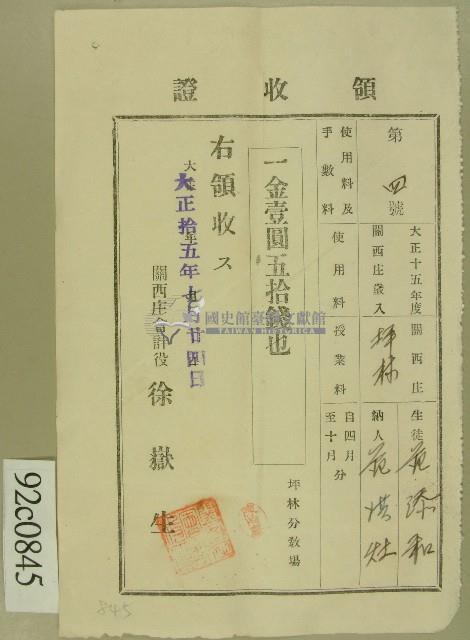 領收證
第四號
大正十五年度 關西庄
關西庄歲入 坪林
生徒 范添和
納人 范洪灶
使用料及手數料
使用料 授業料
自四月至十月分
一金壹圓五拾錢也
坪林分教場
右領收ス
大正拾五年十月廿四日
關西庄會計役 徐嶽生
國史館臺灣文獻館
TAIWAN HISTORICA
92c0845
845